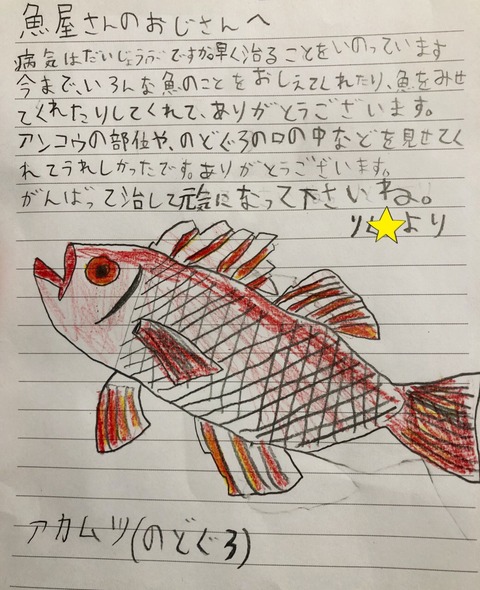 魚屋さんのおじさんへ
病気はだいじょうぶですか早く治ることをいのっています
今まで、いろんな魚のことをおしえてくれたり、魚をみせ
てくれたりしてくれて、ありがとうございます。
アンコウの部位や、のどぐろの口の中などを見せてく
れてうれしかったです。ありがとうございます。
がんばって治して元気になって下さいね。
り より
アカムツ(のどぐろ)